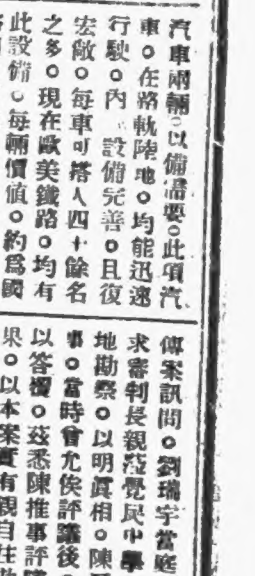 汽車兩輛。以備需要。此項汽
車。在路軌陸地。均能迅速
行駛。內設備完善。且復
宏敞。每車可搭人四十餘名
之多。現在歐美鐵路。均有
此設備。每輛價值。約爲國
傳案訊問。劉瑞宇當庭
求審判長親蒞覺民中學
地勘察。以明眞相。陳
事。當時曾允俟評議後。
以答復。茲悉陳推事評議
果。以本案實有親自往